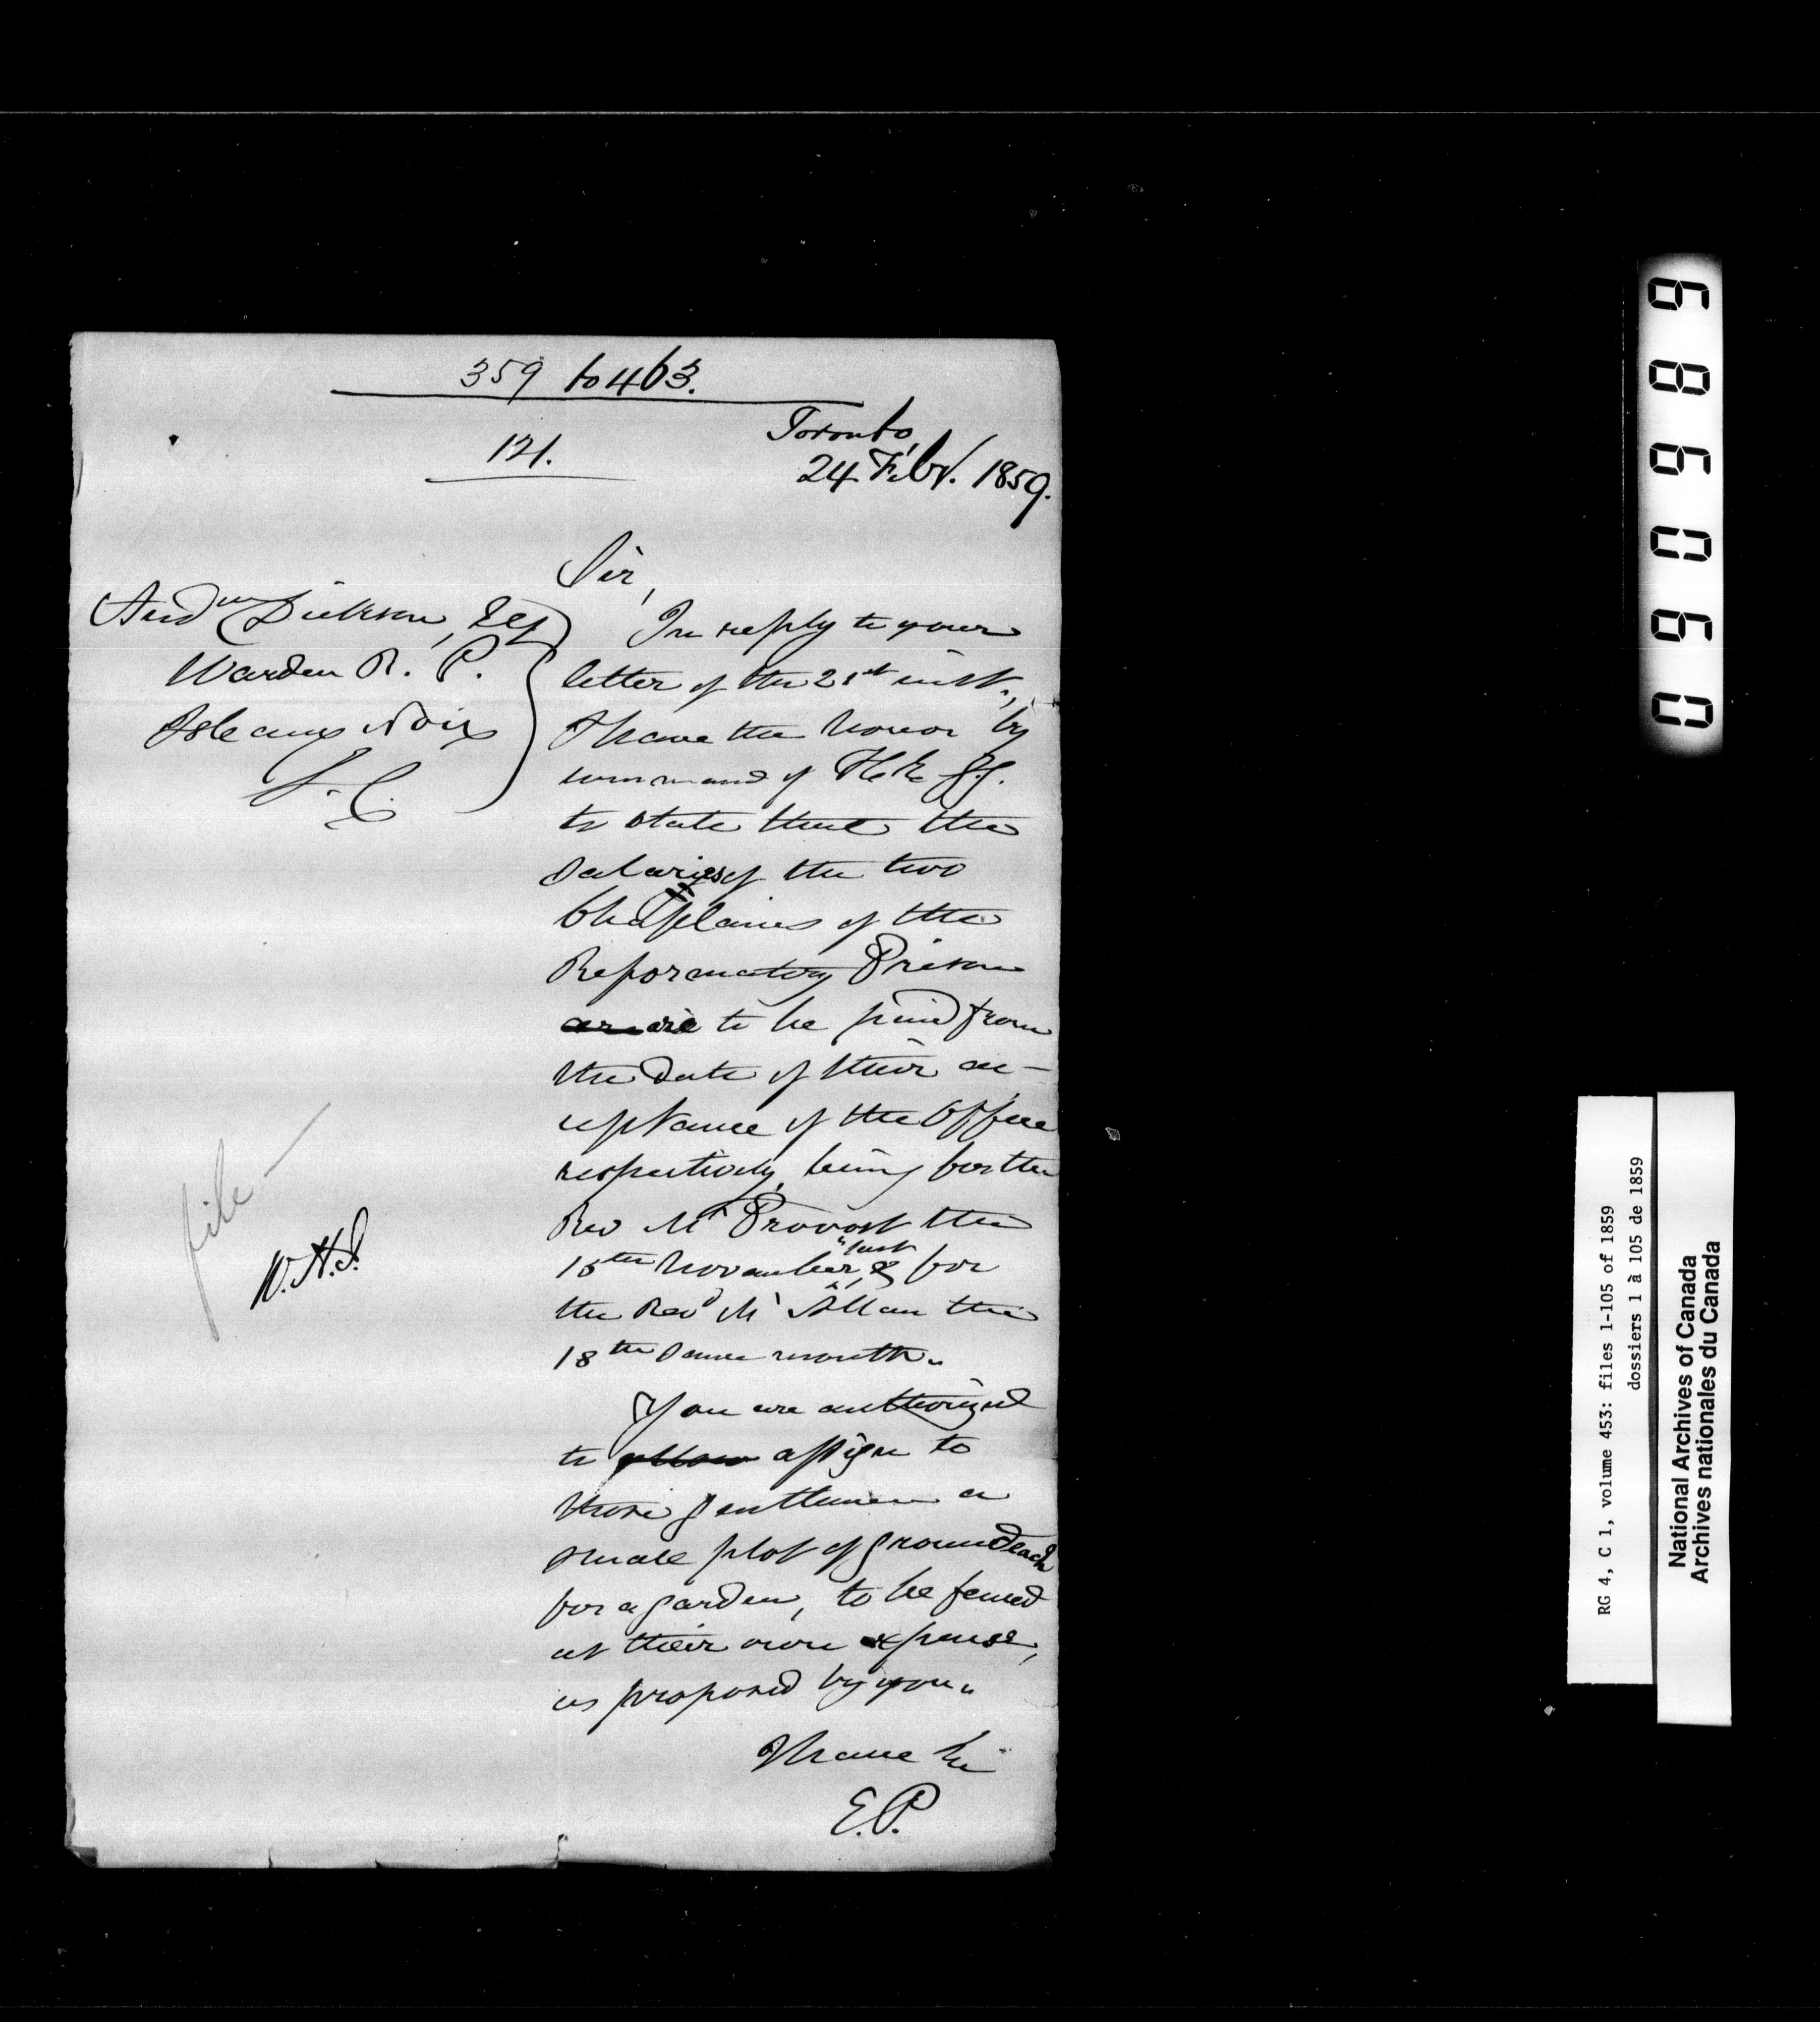 359 to 463.
121.
Toronto,
24 Feby. 1859.
Sir,
Andw Dickson, Esq
Warden R. P.
Isle aux Noix
L. C.
In reply to your
letter of the 21st inst.,
I have the honor by
command of H. E. the G. G.
to state that the
salaries of the two
Chaplains of the
Reformatory Prison
are to be paid from
the date of their ac-
ceptance of the Office
respectively, being for the
Rev Mr Provost the
15th November last, & for
the Revd Mr Allan the
18th same month.
You are authorized
to allow assign to
those gentlemen a
small plot of ground each
for a garden, to be fenced
at their own expense,
as proposed by you.
I have &c
E.P.
file —
W.H.J.
096089
RG 4, C 1, volume 453: files 1-105 of 1859
dossiers 1 à 105 de 1859
National Archives of Canada
Archives nationales du Canada